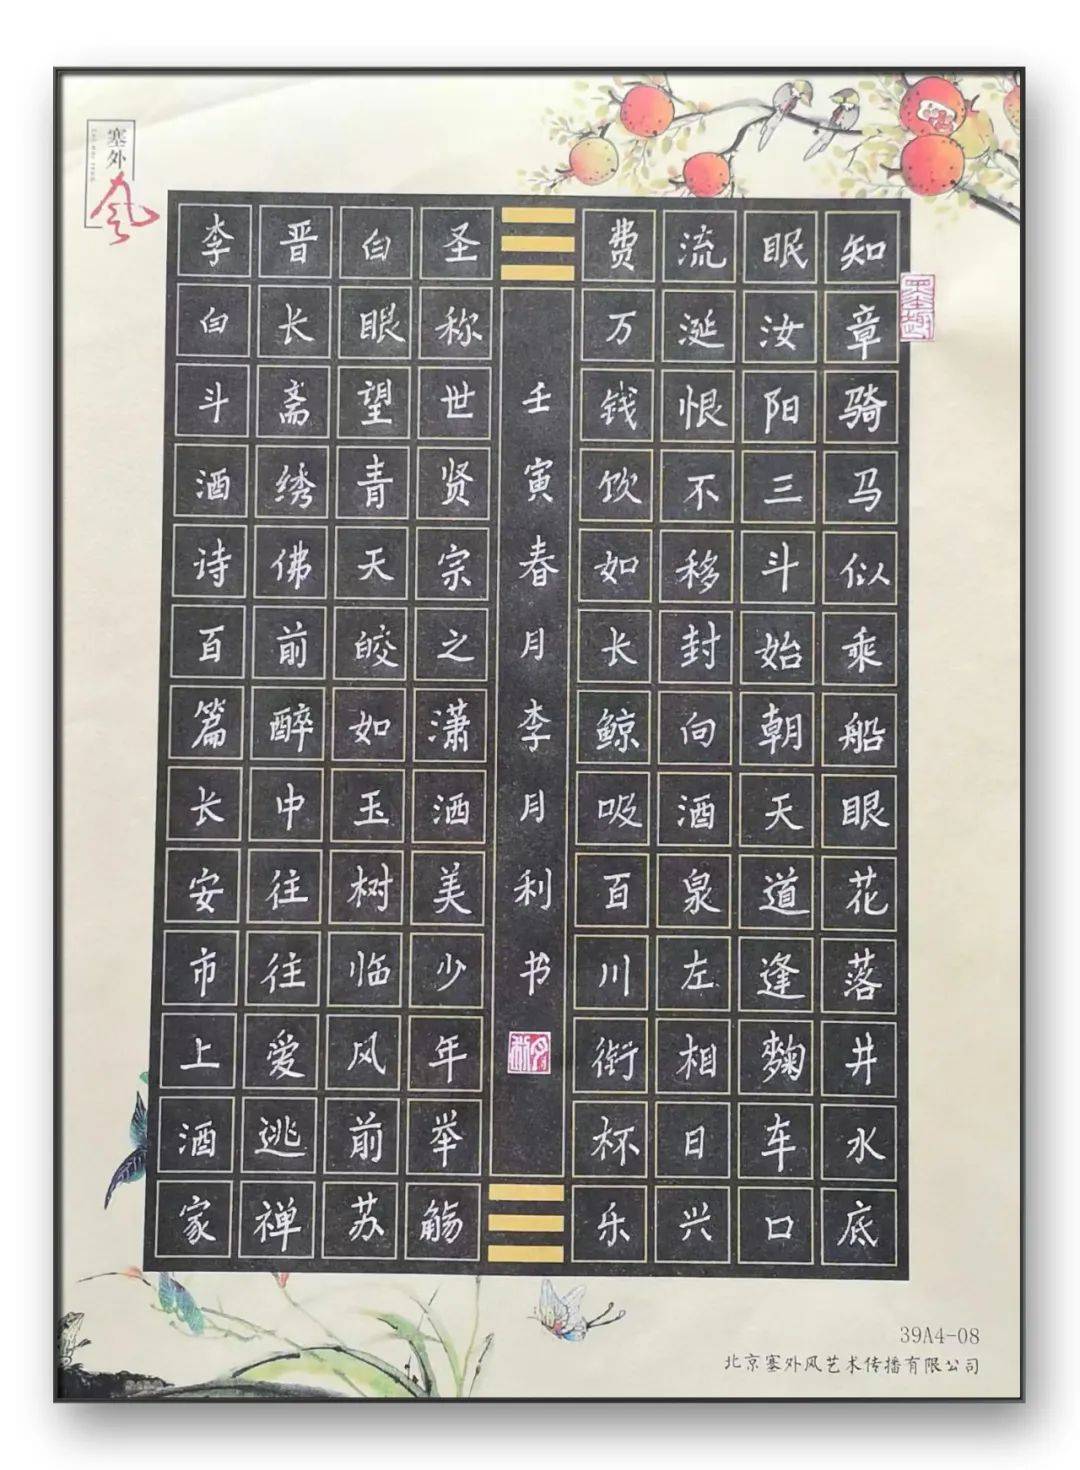 知章骑马似乘船眼花落井水底
眠汝阳三斗始朝天道逢麴车口
流涎恨不移封向酒泉左相日兴
费万钱饮如长鲸吸百川衔杯乐
壬寅春月李月利书
月利
圣称世贤宗之潇洒美少年举觞
白眼望青天皎如玉树临风前苏
晋长斋绣佛前醉中往往爱逃禅
李白斗酒诗百篇长安市上酒家
墨趣
塞外风
39A4-08
北京塞外风艺术传播有限公司